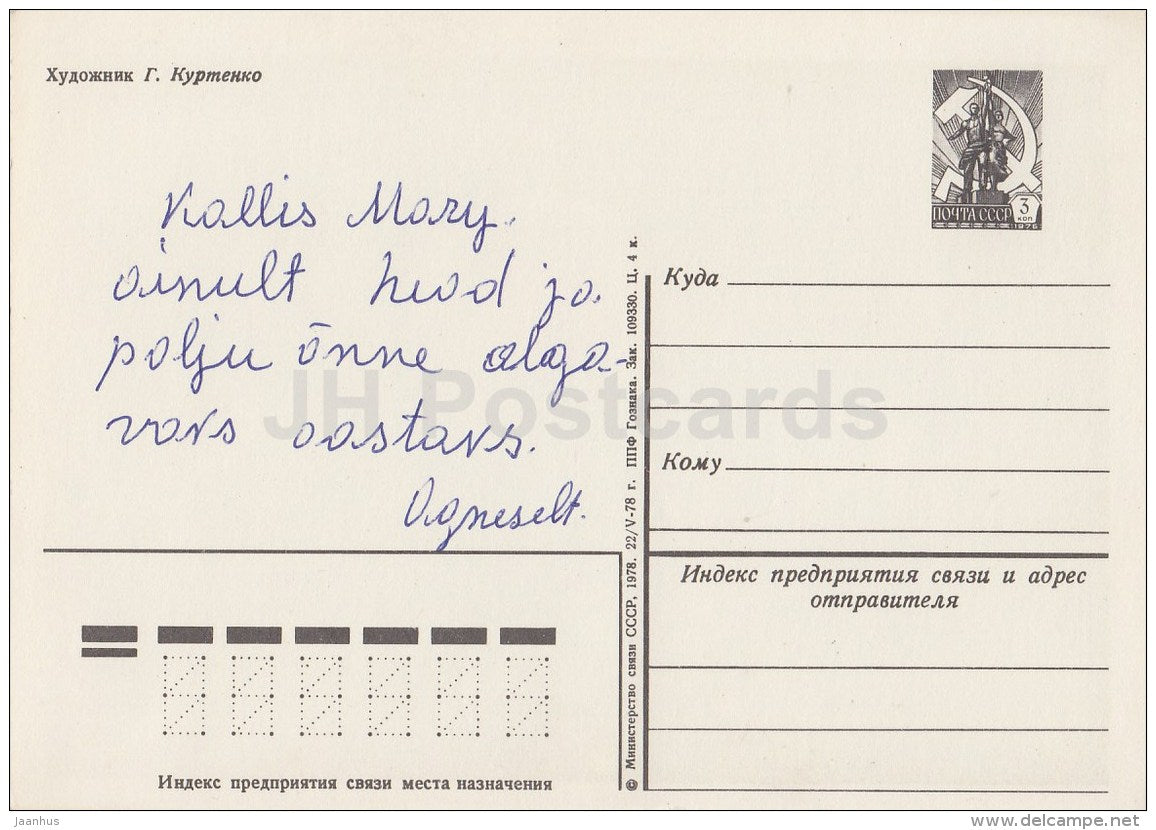 Художник Г. Куртенко
ПОЧТА СССР 3 КОП
1976
Kallis Mary.
ainult head ja
palju õnne alga-
vaks aastaks.
Agneselt.
Куда
Кому
Индекс предприятия связи и адрес
отправителя
© Министерство связи СССР, 1978. 22/V-78 г. ППФ Гознака. Зак. 109330. Ц. 4 к.
Индекс предприятия связи места назначения
JH Postcards
Jaanhus
delcampe.net